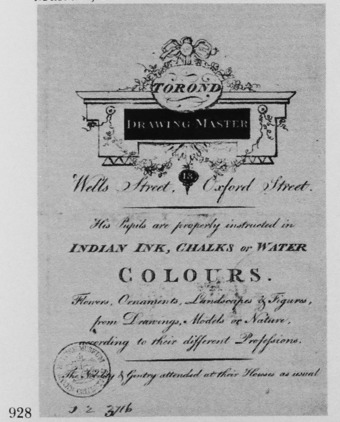 TOROND
DRAWING MASTER
18.
Wells Street, Oxford Street.
His Pupils are properly instructed in
INDIAN INK, CHALKS or WATER
COLOURS.
Flowers, Ornaments, Landscapes & Figures,
from Drawings, Models or Nature,
according to their different Professions.
The Nobility & Gentry attended at their Houses as usual
928